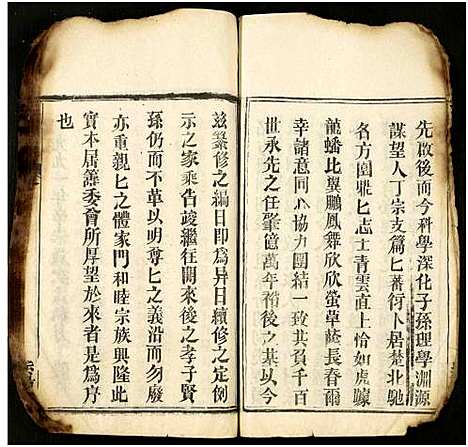 先啟後而今科學深化子孫理學淵源
謀望人丁宗支篇匕著衍卜居楚北馳
名方園雅匕志士青雲直上恰如虎嘯
龍蟠比翼鵬鳳舞欣欣螢草蔭長春爾
幸諸同心協力團結一致其負千百
世承先之任肇億萬年裕後之責以今
茲纂修之編日即為異日續修之定例
示之家乘告竣繼往開來後之孝子賢
孫仍而不革以明尊匕之義沿而勿廢
亦重親匕之體家門和睦宗族興隆此
實本居譜委會所厚望於來者是為序
也